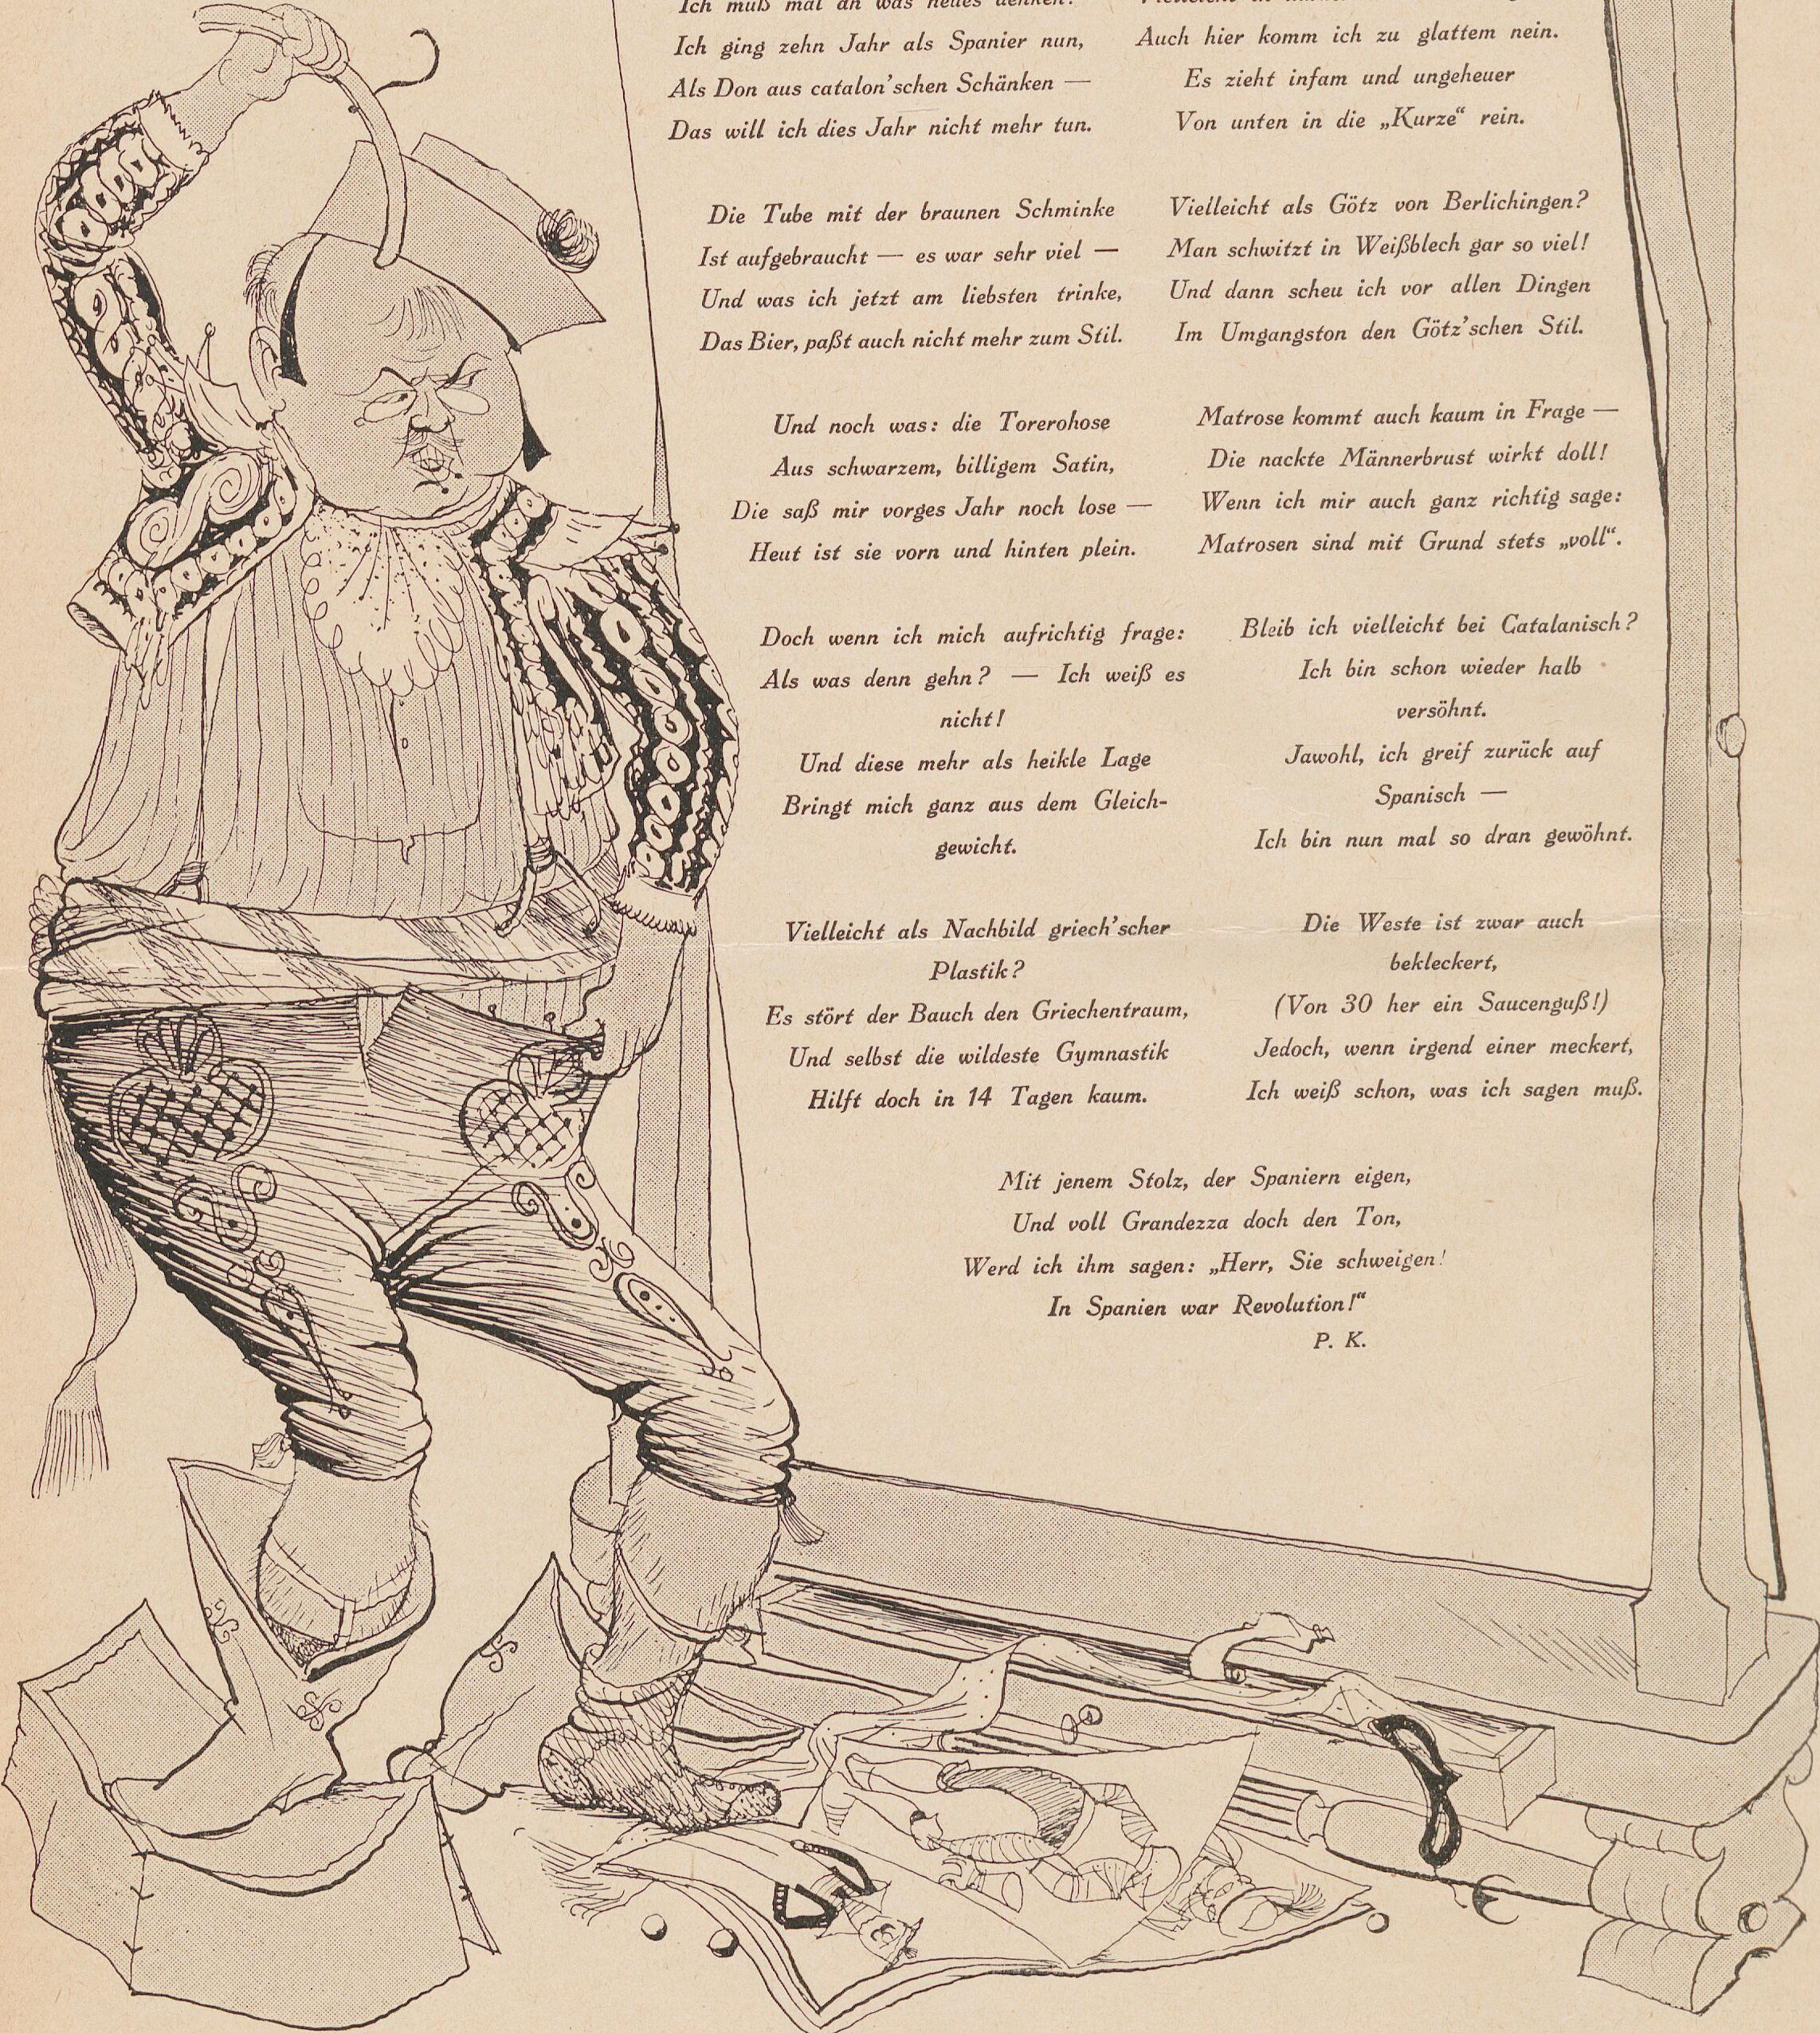 Ich muß mal an was neues denken!
Ich ging zehn Jahr als Spanier nun,
Als Don aus catalon'schen Schänken —
Das will ich dies Jahr nicht mehr tun.
Die Tube mit der braunen Schminke
Ist aufgebraucht — es war sehr viel —
Und was ich jetzt am liebsten trinke,
Das Bier, paßt auch nicht mehr zum Stil.
Und noch was: die Torerohose
Aus schwarzem, billigem Satin,
Die saß mir vorges Jahr noch lose —
Heut ist sie vorn und hinten plein.
Doch wenn ich mich aufrichtig frage:
Als was denn gehn? — Ich weiß es
nicht!
Und diese mehr als heikle Lage
Bringt mich ganz aus dem Gleich-
gewicht.
Vielleicht als Nachbild griech'scher
Plastik?
Es stört der Bauch den Griechentraum,
Und selbst die wildeste Gymnastik
Hilft doch in 14 Tagen kaum.
Vielleicht in
Auch hier komm ich zu glattem nein.
Es zieht infam und ungeheuer
Von unten in die „Kurze“ rein.
Vielleicht als Götz von Berlichingen?
Man schwitzt in Weißblech gar so viel!
Und dann scheu ich vor allen Dingen
Im Umgangston den Götz'schen Stil.
Matrose kommt auch kaum in Frage —
Die nackte Männerbrust wirkt doll!
Wenn ich mir auch ganz richtig sage:
Matrosen sind mit Grund stets „voll“.
Bleib ich vielleicht bei Catalanisch?
Ich bin schon wieder halb
versöhnt.
Jawohl, ich greif zurück auf
Spanisch —
Ich bin nun mal so dran gewöhnt.
Die Weste ist zwar auch
bekleckert,
(Von 30 her ein Saucenguß!)
Jedoch, wenn irgend einer meckert,
Ich weiß schon, was ich sagen muß.
Mit jenem Stolz, der Spaniern eigen,
Und voll Grandezza doch den Ton,
Werd ich ihm sagen: „Herr, Sie schweigen!
In Spanien war Revolution!“
P. K.